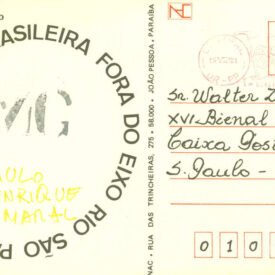 BRASILEIRA FORA DO EIXO RIO SÃO PA
MG
PAULO
HENRIQUE
AMARAL
NAC - RUA DAS TRINCHEIRAS, 275 - 58.000 - JOÃO PESSOA - PARAÍBA
Sr. Walter Z
XVI Bienal
Caixa Post
S. Paulo -
0 1 0